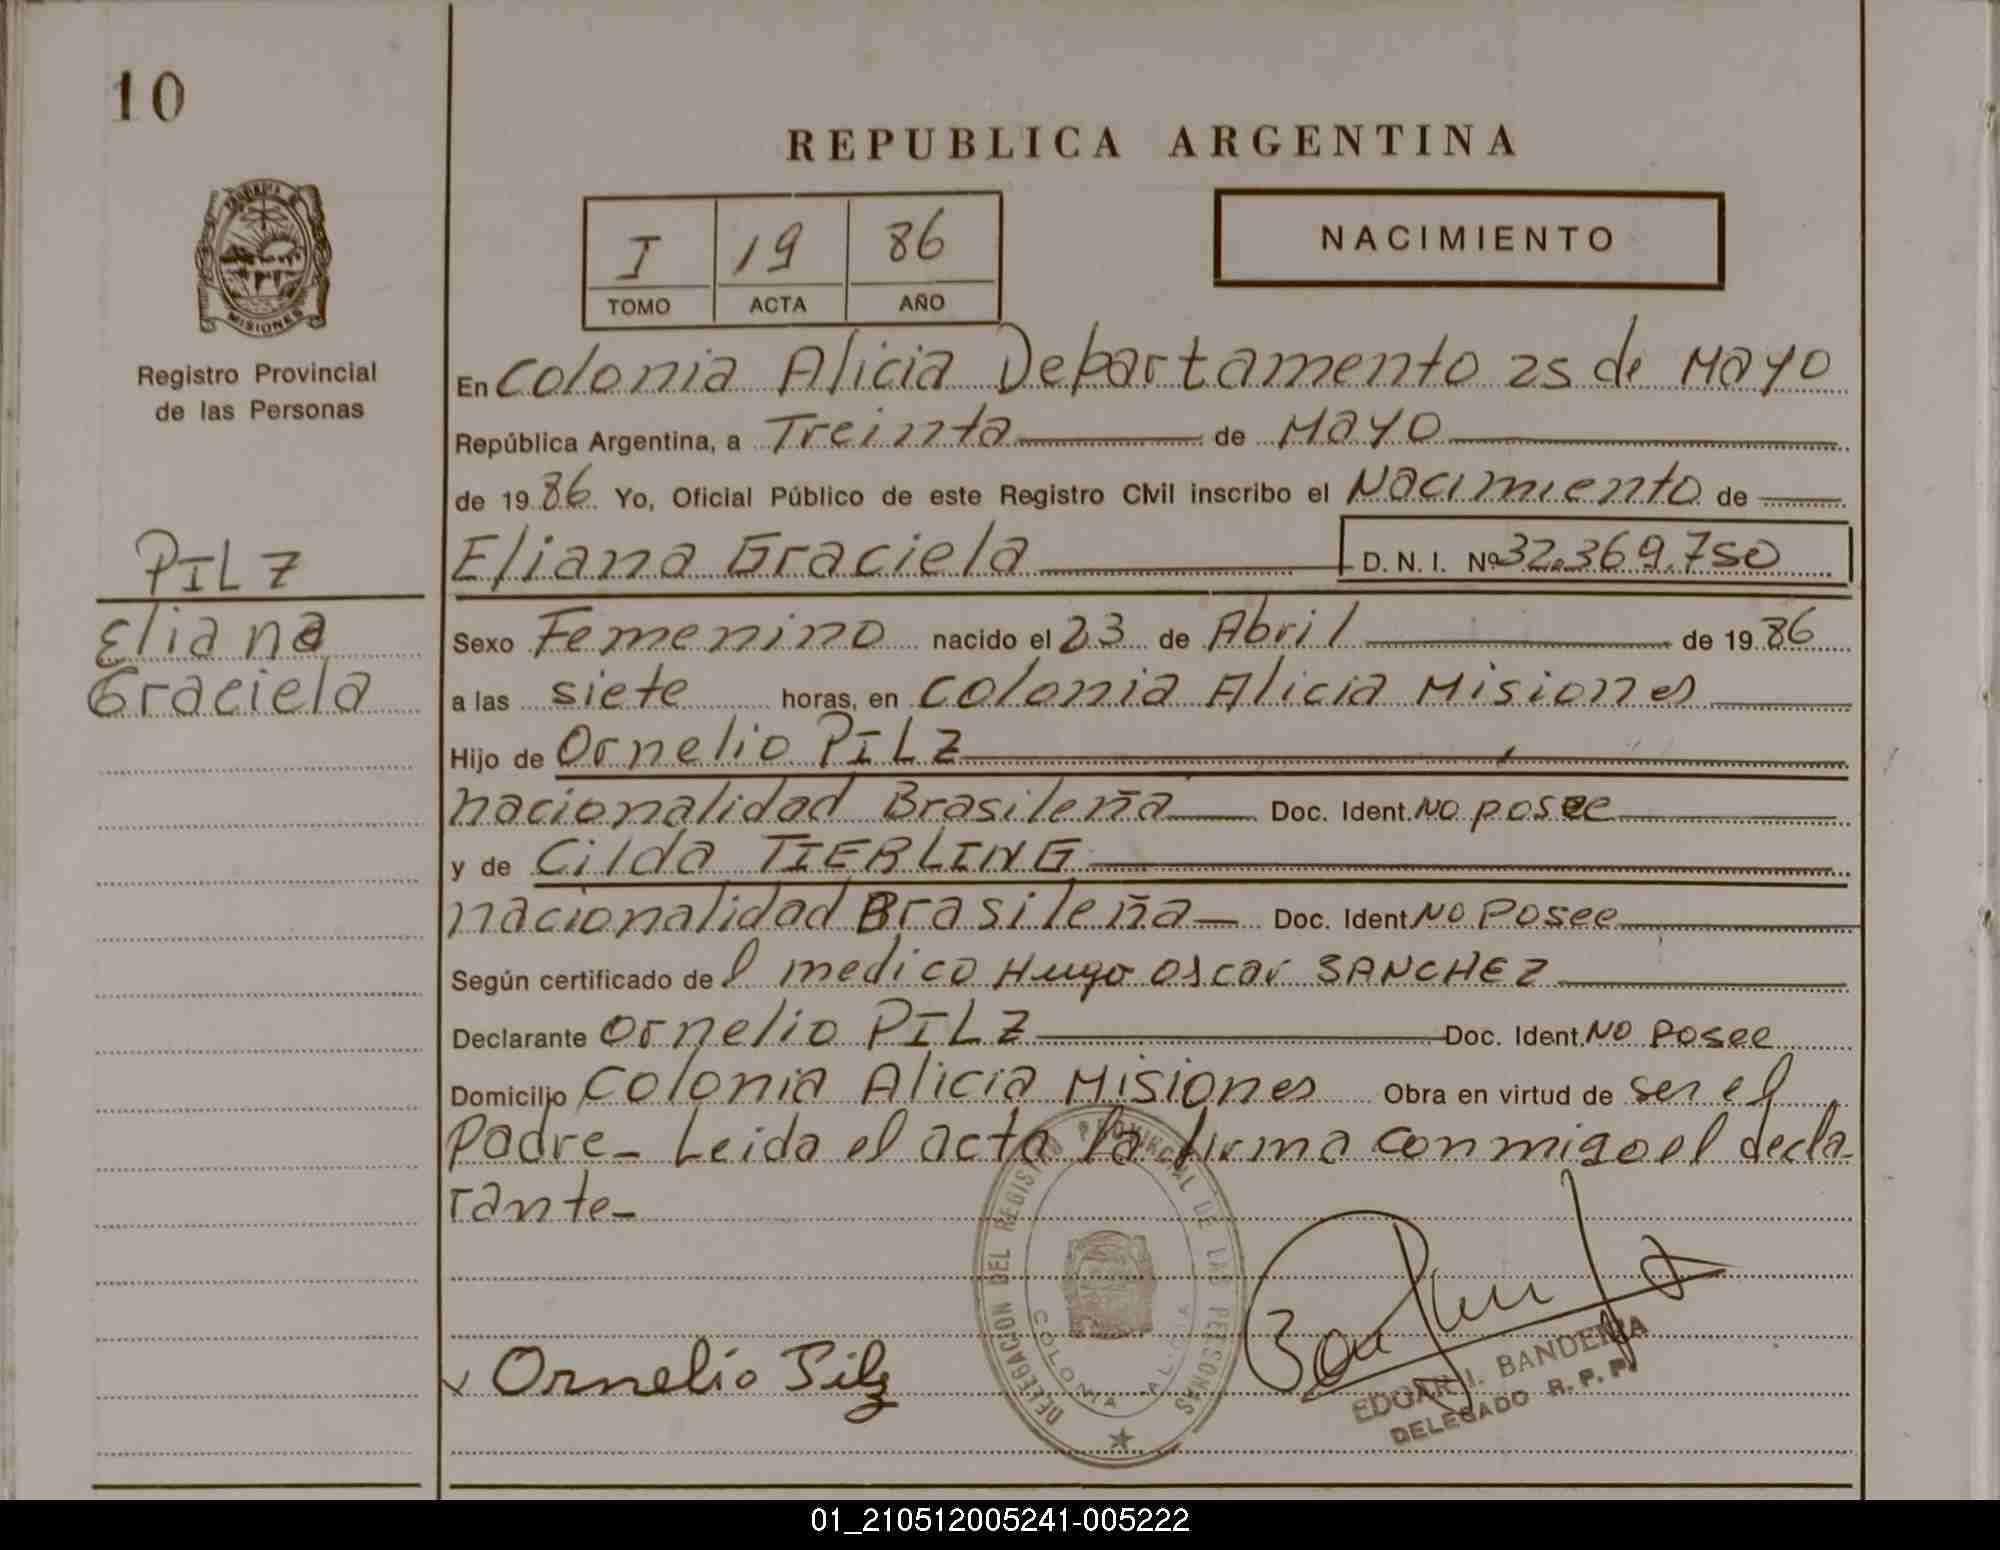 10
REPUBLICA ARGENTINA
I 19 86
TOMO ACTA AÑO
NACIMIENTO
MISIONES
Registro Provincial
de las Personas
PILZ
Eliana
Graciela
En Colonia Alicia Departamento 25 de Mayo
República Argentina, a Treinta de Mayo
de 1986. Yo, Oficial Público de este Registro Civil inscribo el Nacimiento de
Eliana Graciela D. N. I. Nº 32.369.750
Sexo Femenino nacido el 23 de Abril de 1986
a las siete horas, en Colonia Alicia Misiones
Hijo de Ornelio PILZ
nacionalidad Brasileña Doc. Ident. No posee
y de Cilda TIERLING
nacionalidad Brasileña Doc. Ident. No Posee
Según certificado del medico Hugo Oscar SANCHEZ
Declarante Ornelio PILZ Doc. Ident. No Posee
Domicilio Colonia Alicia Misiones Obra en virtud de ser el
Padre- Leida el acta la firma conmigo el decla-
rante-
DELEGACION DEL REGISTRO PROVINCIAL DE LAS PERSONAS
COLONIA ALICIA
Ornelio Pilz
EDGAR I. BANDERA
DELEGADO R. P. P.
01_210512005241-005222